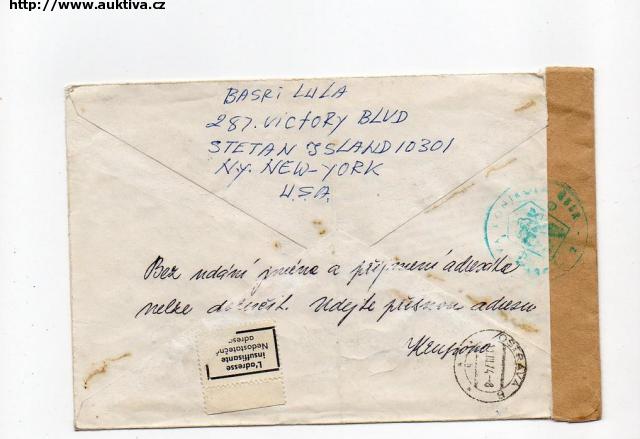 http://www.auktiva.cz
BASRI LULA
287. VICTORY BLVD
STETAN ISLAND 10301
NY. NEW-YORK
U.S.A.
Bez udání jména a příjmení adresáta
nelze doručit. Udejte přesnou adresu
L'adresse
insuffisante
Nedostatečná
adresa
OSTRAVA